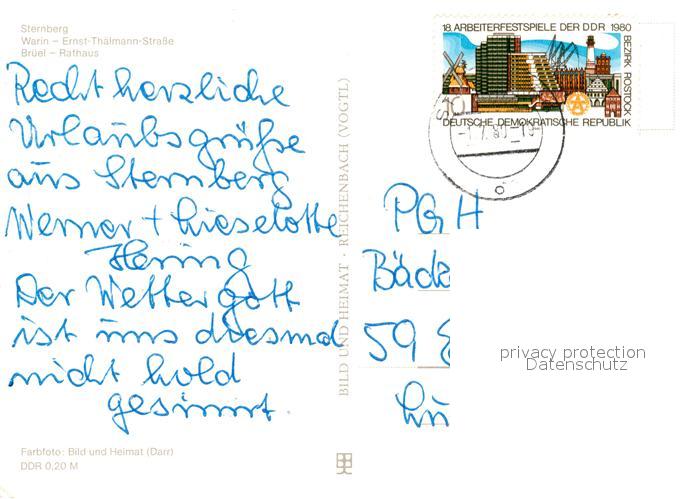 Sternberg
Warin – Ernst-Thälmann-Straße
Brüel – Rathaus
Recht herzliche
Urlaubsgrüße
aus Sternberg
Werner + Lieselotte
Hering
Der Wettergott
ist uns diesmal
nicht hold
gesinnt.
Farbfoto: Bild und Heimat (Darr)
DDR 0,20 M
BILD UND HEIMAT · REICHENBACH (VOGTL)
18. ARBEITERFESTSPIELE DER DDR 1980
BEZIRK ROSTOCK
DEUTSCHE DEMOKRATISCHE REPUBLIK
PGH
Bäck
59
privacy protection
Datenschutz